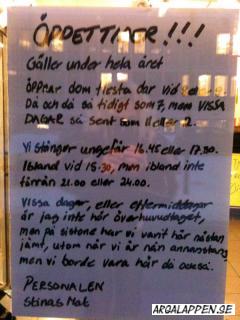 ÖPPETTIDER!!!
Gäller under hela året
ÖPPNAR dom flesta dar vid
Då och då så tidigt som 7, men VISSA
DAGAR så sent som 11 eller 12.
Vi stänger ungefär 16.45 eller 17.30.
Ibland vid 15.30, men ibland inte
förrän 21.00 eller 24.00.
VISSA dagar, eller eftermiddagar
är jag inte här överhuvudtaget,
men på sistone har vi varit här nästan
jämt, utom när vi är nån annanstans
men vi borde vara här då också.
PERSONALEN
Stinas Mat
ARGALAPPEN.SE